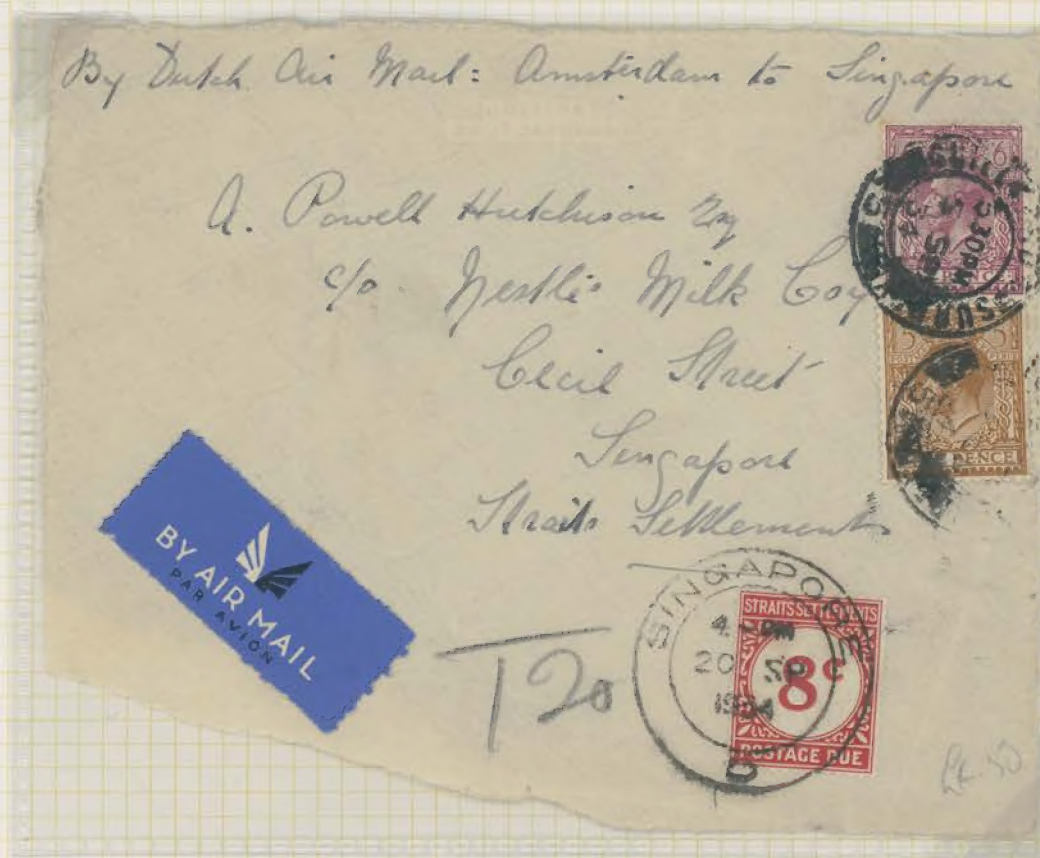 By Dutch Air Mail: Amsterdam to Singapore
A. Powell Hutchison Esq
c/o. Nestlé's Milk Coy
Cecil Street
Singapore
Straits Settlements
5 30PM
SP
34
SURREY
PENCE
PENCE
BY AIR MAIL
PAR AVION
T 20
SINGAPORE
PM
20 SP
1934
D
STRAITS SETTLEMENTS
8c
POSTAGE DUE